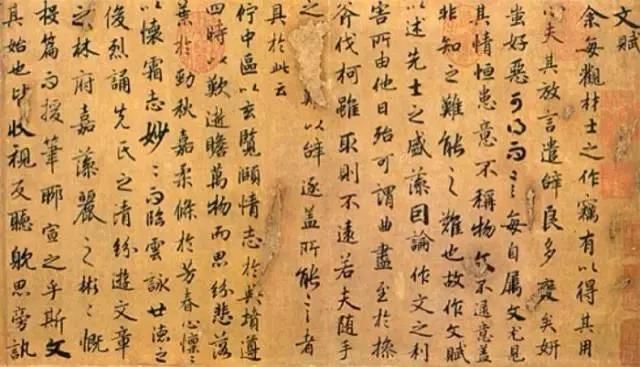 文賦
余每觀材士之作竊有以得其用
心夫其放言遣辞良多變矣妍
蚩好惡可得而言每自属文尤見
其情恒患意不稱物文不逮意盖
非知之難能之難也故作文賦
以述先士之盛藻因論作文之利
害所由他日殆可謂曲盡至於操
斧伐柯雖取則不遠若夫随手
之難以辞逐盖所能言者
具於此云
佇中區以玄覽頤情志於典墳遵
四時以歎逝瞻萬物而思紛悲落
葉於勁秋嘉柔條於芳春心懍〻
以懷霜志妙〻而臨雲詠世德之
俊烈誦先民之清紛遊文章
之林府嘉藻麗之彬〻慨
投篇而援筆聊宣之乎斯文
其始也皆收視反聽躭思旁訊